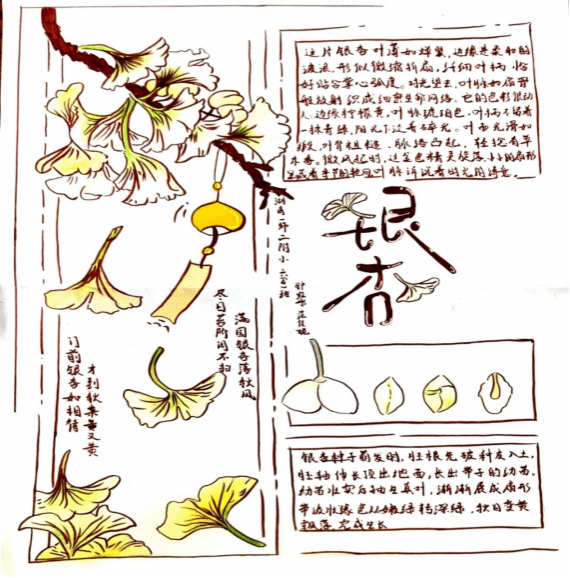 这片银杏叶薄如蝉翼,边缘是柔和的
波流,形似微缩折扇,纤细叶柄,恰
好贴合掌心弧度。对光望去,叶脉如扇骨
般放射,织成细密生命网络。它的色彩很动
人,边缘柠檬黄,叶脉琥珀色,叶柄还留着
一抹青绿,阳光下泛着碎光。叶面光滑如
缎,叶背粗糙,脉络凸起,轻捻有草
木香。微风起时,这金色精灵旋落,小小的扇形
里藏着季节的
叶脉诉说着时光的诗意。
银杏
满园银杏落秋风
尽日苔阶闲不扫
门前银杏如相待
才到秋来黄又黄
银杏种子萌发时,胚根先破种皮入土,
胚轴伸长顶出地面,长出带子的幼苗。
幼苗壮实后抽生真叶,渐渐展成扇形
带波状缘,色从嫩绿转深绿,秋日变黄
飘落,完成生长